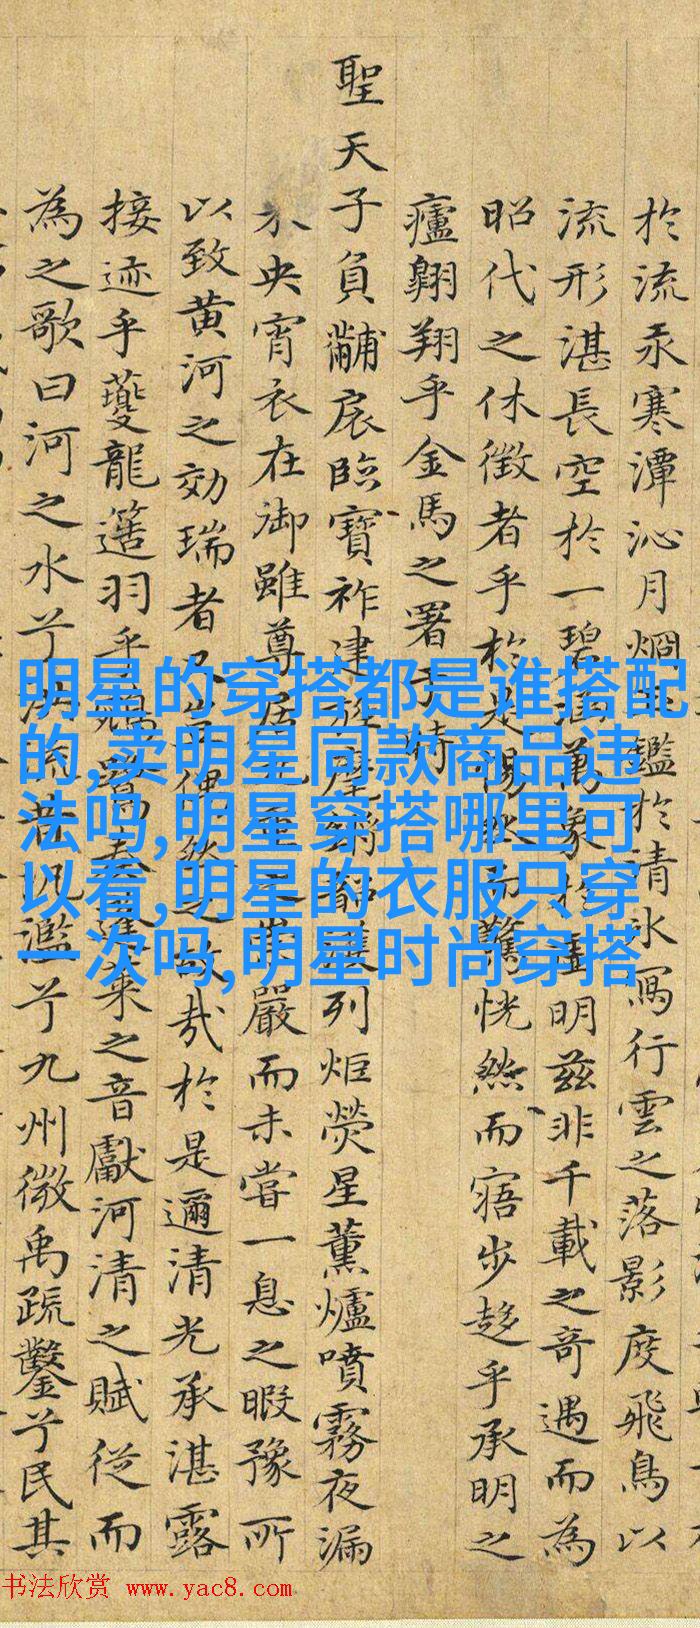 於流汞寒潭沁月烱玉鑑於清氷寫行雲之落影度飛鳥以
流形湛長空於一碧涵萬象於虛明兹非千載之奇遇而為
昭代之休徵者乎於是惕然而驚恍然而寤步趍乎承明之
廬翺翔乎金馬之署于時
聖天子負黼扆臨寶祚建
列炬熒星薰爐噴霧夜漏
未央宵衣在御雖尊居
嚴而未嘗一息之暇豫所
以致黄河之効瑞者
哉於是邇清光承湛露
接迹乎夔龍簉羽乎鵷鷺奏
來之音獻河清之賦從而
為之歌曰河之水兮
流昔汎濫兮九州微禹疏鑿兮民其
明星的穿搭都是谁搭配
的,卖明星同款商品违
法吗,明星穿搭哪里可
以看,明星的衣服只穿
一次吗,明星时尚穿搭
书法欣赏 www.yac8.com